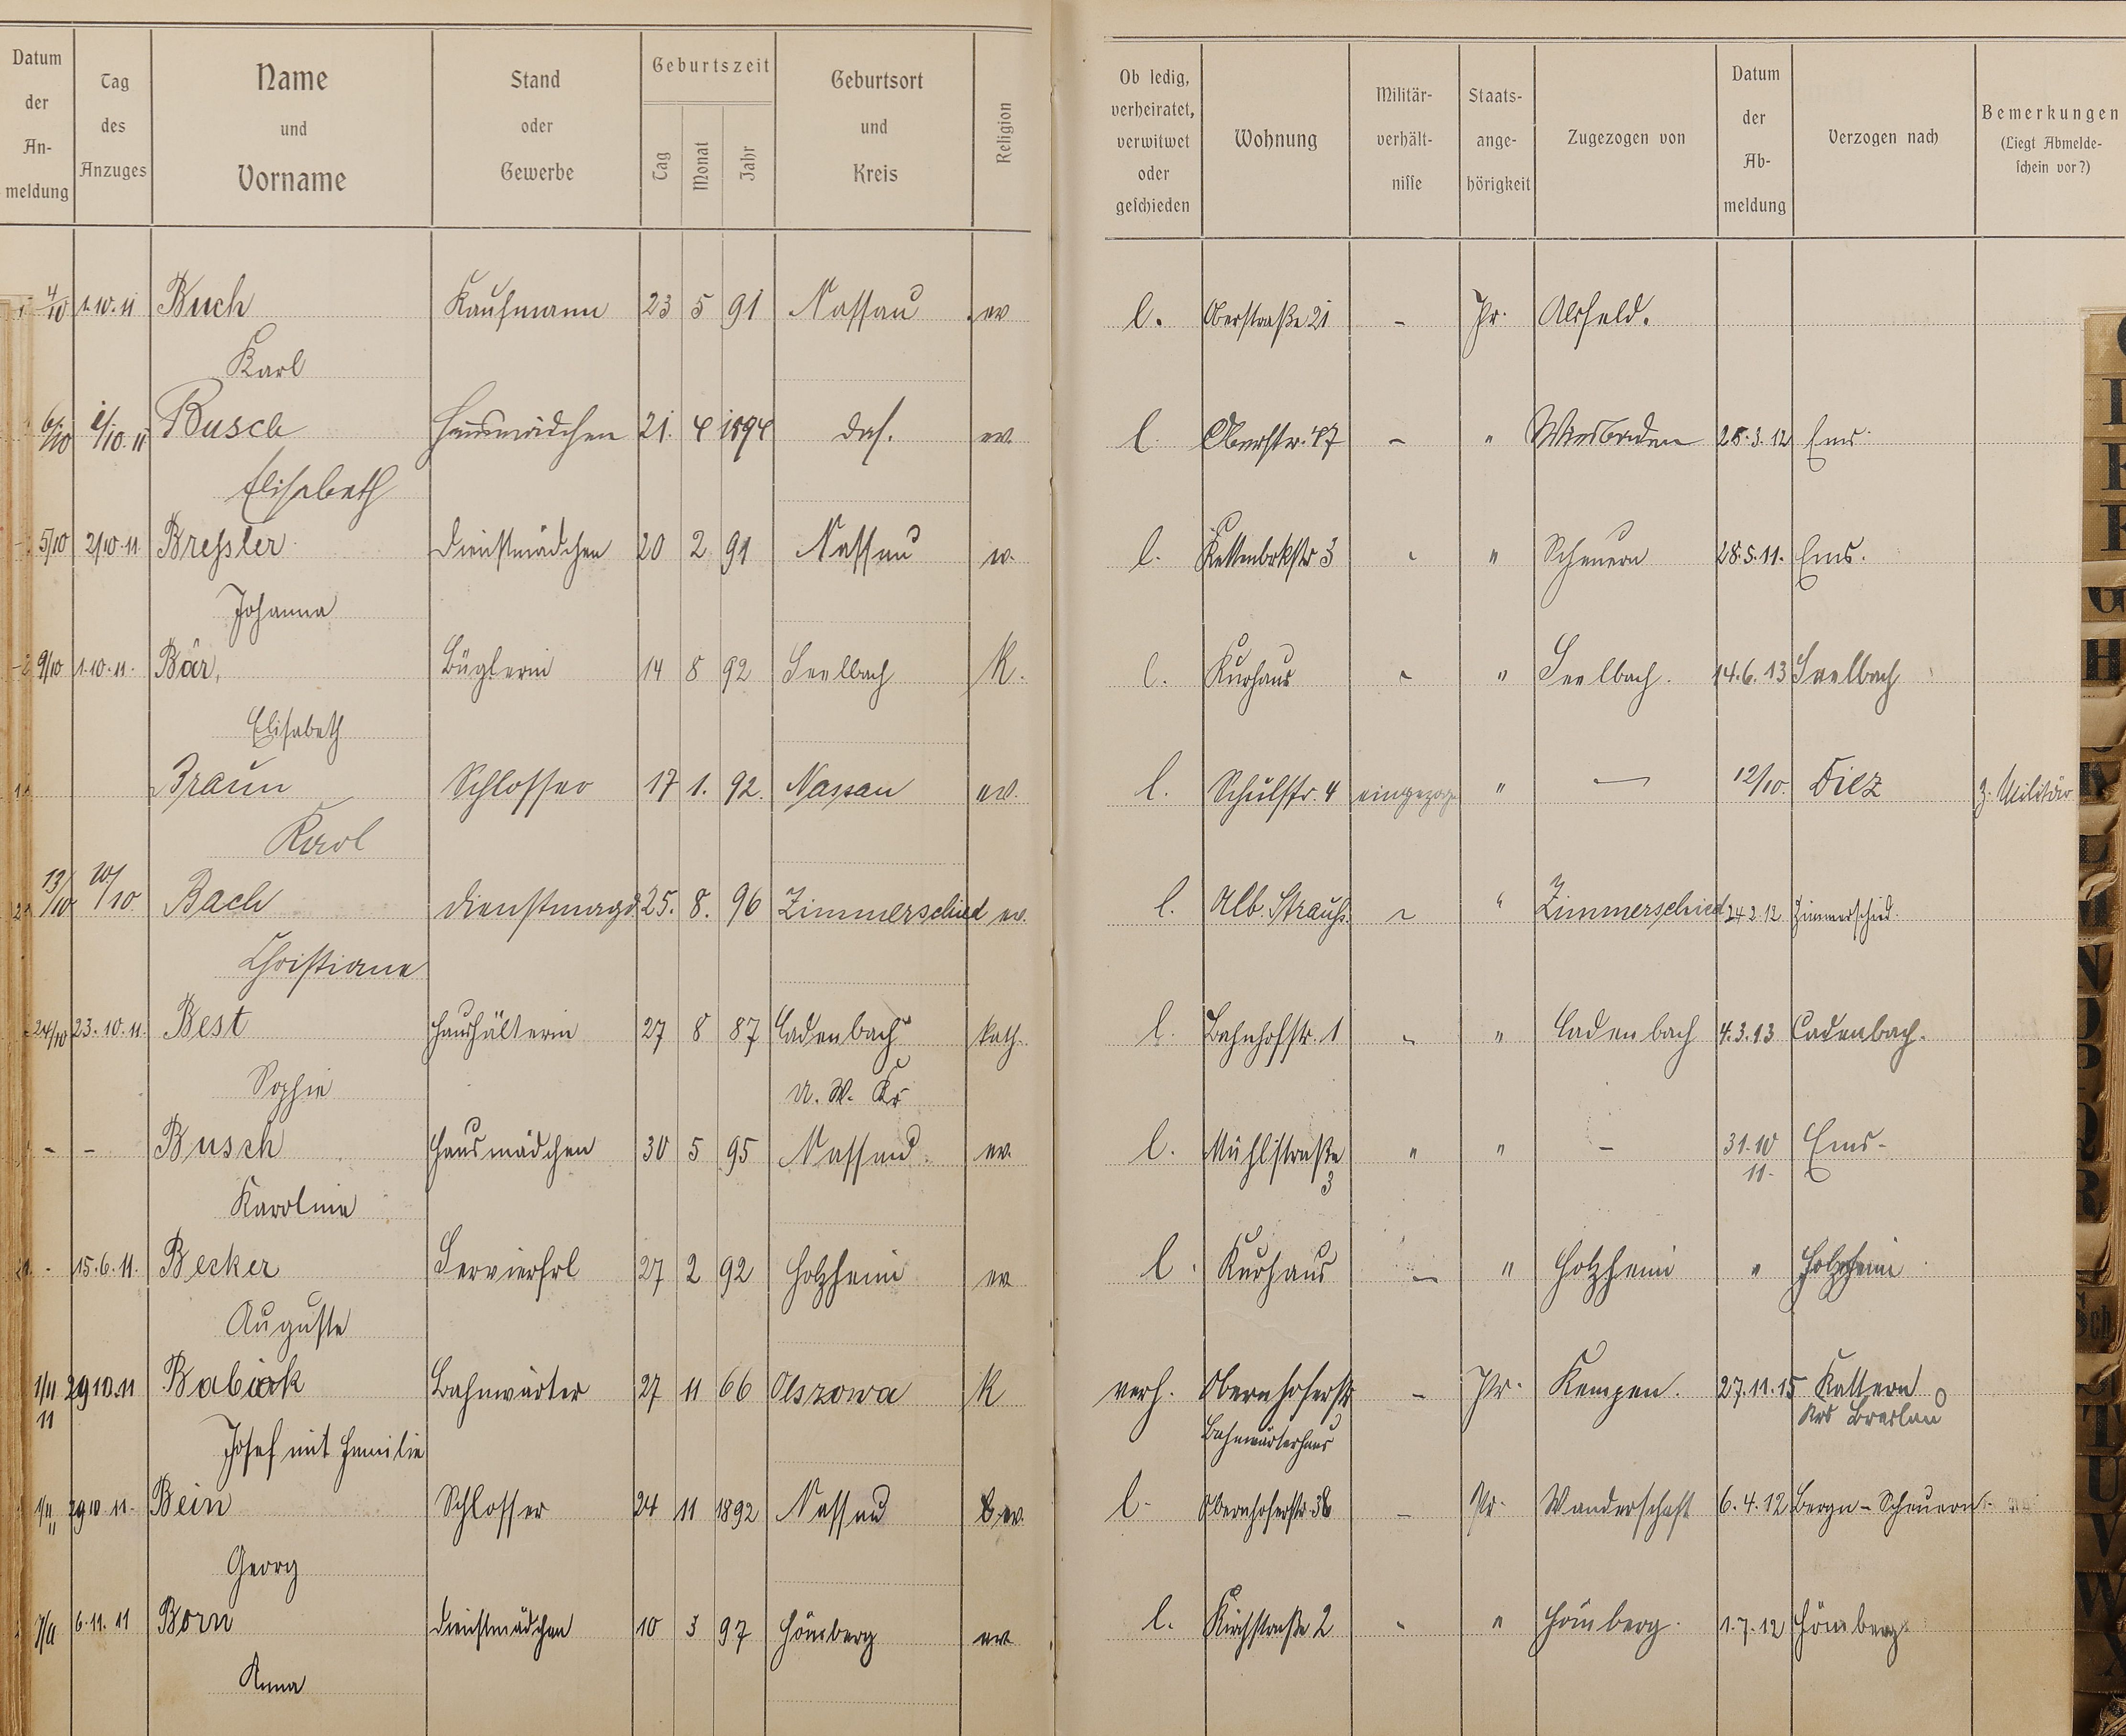 Datum der Anmeldung | Tag des Anzuges | Name und Vorname | Stand oder Gewerbe | Geburtszeit Tag Monat Jahr | Geburtsort und Kreis | Religion | Ob ledig, verheiratet, verwitwet oder geschieden | Wohnung | Militärverhältnisse | Staatsangehörigkeit | Zugezogen von | Datum der Abmeldung | Verzogen nach | Bemerkungen (Liegt Abmeldeschein vor?)
4/10 1.10.11 Buch Kaufmann 23 5 91 Nassau ev l. Oberstraße 21 - Pr. Alsfeld.
Karl
6/10 1/10.11 Busch Hausmädchen 21. 4 1894 das. ev. l. Oberstr. 47 - " Wiesbaden 28.3.12 Ems.
Elisabeth
5/10 2/10.11 Breßler Dienstmädchen 20 2 91 Nassau ev. l. " Scheuern 28.5.11. Ems.
Johanna
9/10 1.10.11. Bär, Büglerin 14 8 92 Seelbach K. l. Kurhaus - " Seelbach. 14.6.13 Seelbach
Elisabeth
Braun Schlosser 17 1. 92. Nassau ev. l. Schulstr. 4 eingezog. " — 12/10. Diez z. Militär
Karl
13/10 10/10 Bach Dienstmagd 25. 8. 96 Zimmerschied ev. l. Alb. Strauß. - " Zimmerschied 24.2.12 Zimmerschied.
Christiane
24/10 23.10.11. Best Haushälterin 27 8 87 Cadenbach kath. l. Bahnhofstr. 1 " " Cadenbach 4.3.13 Cadenbach.
Sophie U. W. Kr
- - Busch Hausmädchen 30 5 95 Nassau ev. l. Mühlstraße " " - 31.10 Ems-
3 11.
Karoline
- 15.6.11. Becker Servierfrl 27 2 92 Holzheim ev l. Kurhaus - " Holzheim " Holzheim
Auguste
1/11 29.10.11 Babiak Bahnwärter 27 11 66 Olszowa K verh. Obernhoferstr - Pr. Kempen. 27.11.15 Kattern
11 Bahnwärterhaus Krs Breslau
Josef mit Familie
1/11 29.10.11. Bein Schlosser 24 11 1892 Nassau ev. l- Obernhoferstr. 36 - Pr. Wanderschaft 6.4.12 Bergn-Scheuern-
Georg
7/11 6.11.11 Born Dienstmädchen 10 3 97 Hömberg ev l. Kirchstraße 2 " " Hömberg. 1.7.12 Hömberg.
Anna
G
H
K
L
M
N
O
P
Q
R
Sch
T
U
V
W